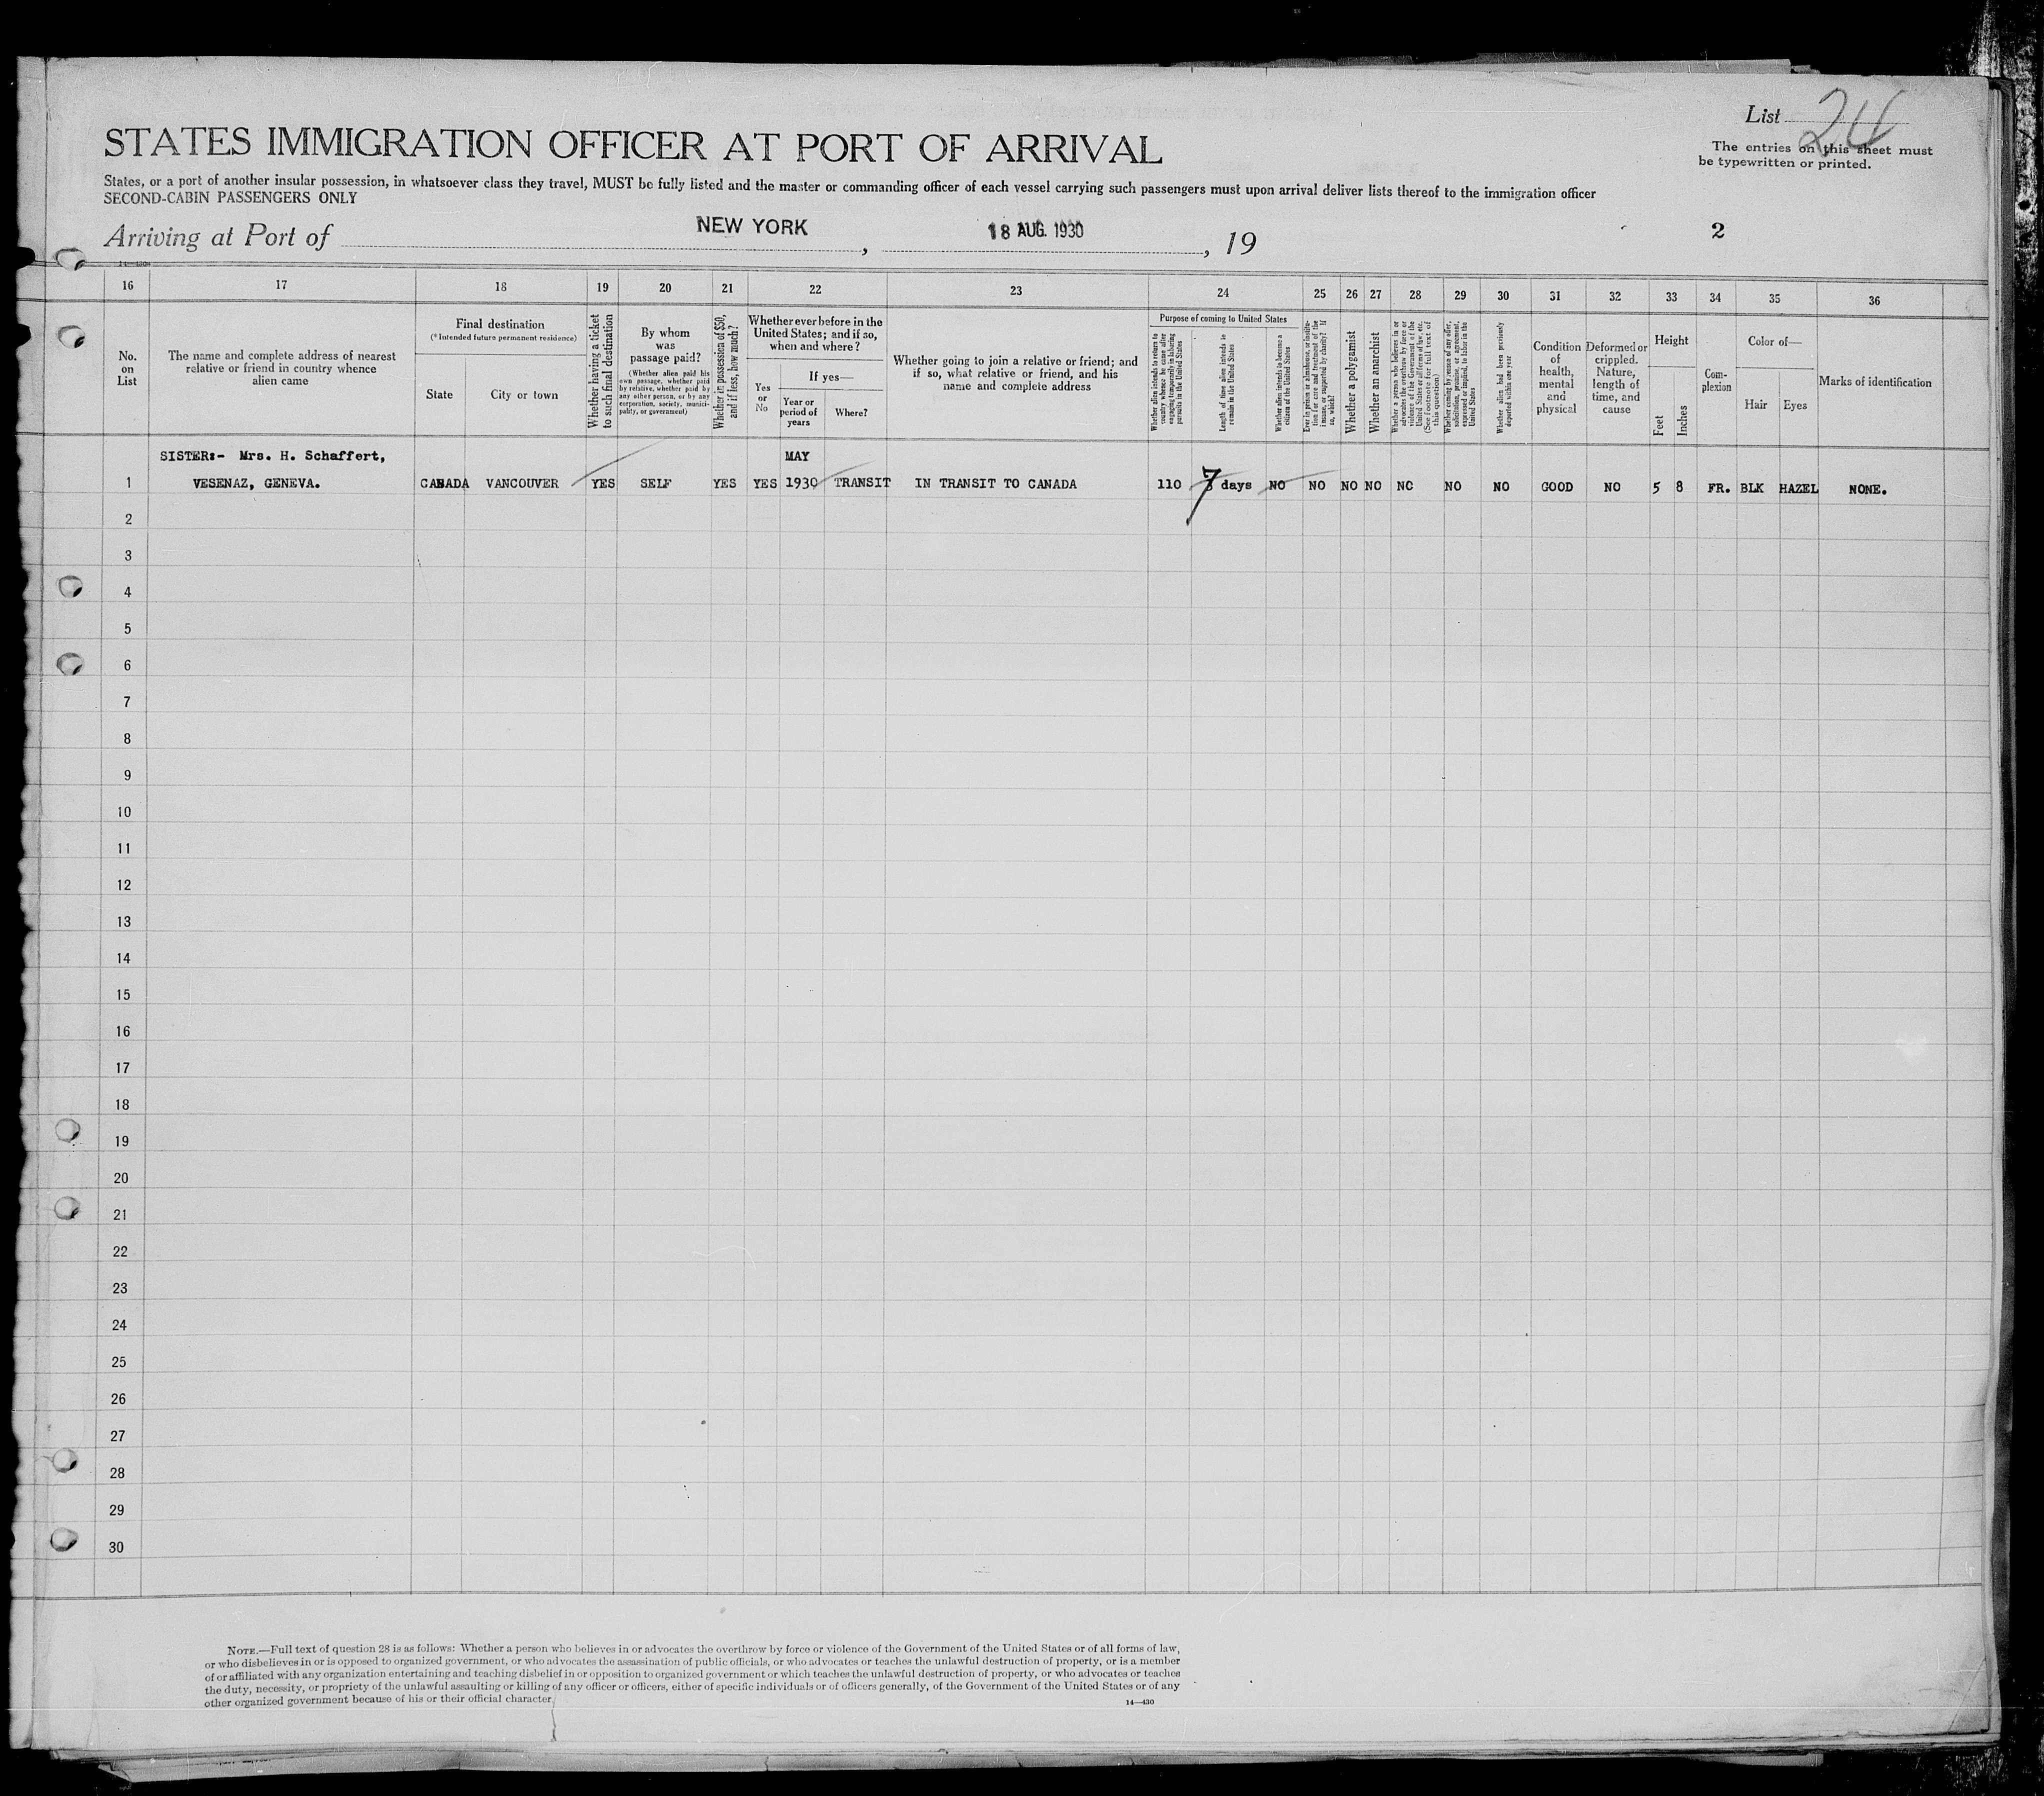 List 24
The entries on this sheet must
be typewritten or printed.
STATES IMMIGRATION OFFICER AT PORT OF ARRIVAL
States, or a port of another insular possession, in whatsoever class they travel, MUST be fully listed and the master or commanding officer of each vessel carrying such passengers must upon arrival deliver lists thereof to the immigration officer
SECOND-CABIN PASSENGERS ONLY
Arriving at Port of NEW YORK, 18 AUG. 1930, 19
2
14—430
16 17 18 19 20 21 22 23 24 25 26 27 28 29 30 31 32 33 34 35 36
No.
on
List
The name and complete address of nearest
relative or friend in country whence
alien came
Final destination
(*Intended future permanent residence)
State
City or town
Whether having a ticket
to such final destination
By whom
was
passage paid?
(Whether alien paid his
own passage, whether paid
by relative, whether paid by
any other person, or by any
corporation, society, munici-
pality, or government)
Whether in possession of $50,
and if less, how much?
Whether ever before in the
United States; and if so,
when and where?
Yes
or
No
If yes—
Year or
period of
years
Where?
Whether going to join a relative or friend; and
if so, what relative or friend, and his
name and complete address
Purpose of coming to United States
Whether alien intends to return to
country whence he came after
engaging temporarily in laboring
pursuits in the United States
Length of time alien intends to
remain in the United States
Whether alien intends to become a
citizen of the United States
Ever in prison or almshouse, or institu-
tion for care and treatment of the
insane, or supported by charity? If
so, which?
Whether a polygamist
Whether an anarchist
Whether a person who believes in or
advocates the overthrow by force or
violence of the Government of the
United States or all forms of law, etc.
(See footnote for full text of
this question)
Whether coming by reason of any offer,
solicitation, promise, or agreement,
expressed or implied, to labor in the
United States
Whether alien had been previously
deported within one year
Condition
of
health,
mental
and
physical
Deformed or
crippled.
Nature,
length of
time, and
cause
Height
Feet
Inches
Com-
plexion
Color of—
Hair
Eyes
Marks of identification
SISTER:- Mrs. H. Schaffert, MAY
1 VESENAZ, GENEVA. CANADA VANCOUVER YES SELF YES YES 1930 TRANSIT IN TRANSIT TO CANADA 110 7 days NO NO NO NO NO NO NO GOOD NO 5 8 FR. BLK HAZEL NONE.
2
3
4
5
6
7
8
9
10
11
12
13
14
15
16
17
18
19
20
21
22
23
24
25
26
27
28
29
30
NOTE.—Full text of question 28 is as follows: Whether a person who believes in or advocates the overthrow by force or violence of the Government of the United States or of all forms of law,
or who disbelieves in or is opposed to organized government, or who advocates the assassination of public officials, or who advocates or teaches the unlawful destruction of property, or is a member
of or affiliated with any organization entertaining and teaching disbelief in or opposition to organized government or which teaches the unlawful destruction of property, or who advocates or teaches
the duty, necessity, or propriety of the unlawful assaulting or killing of any officer or officers, either of specific individuals or of officers generally, of the Government of the United States or of any
other organized government because of his or their official character.
14—430